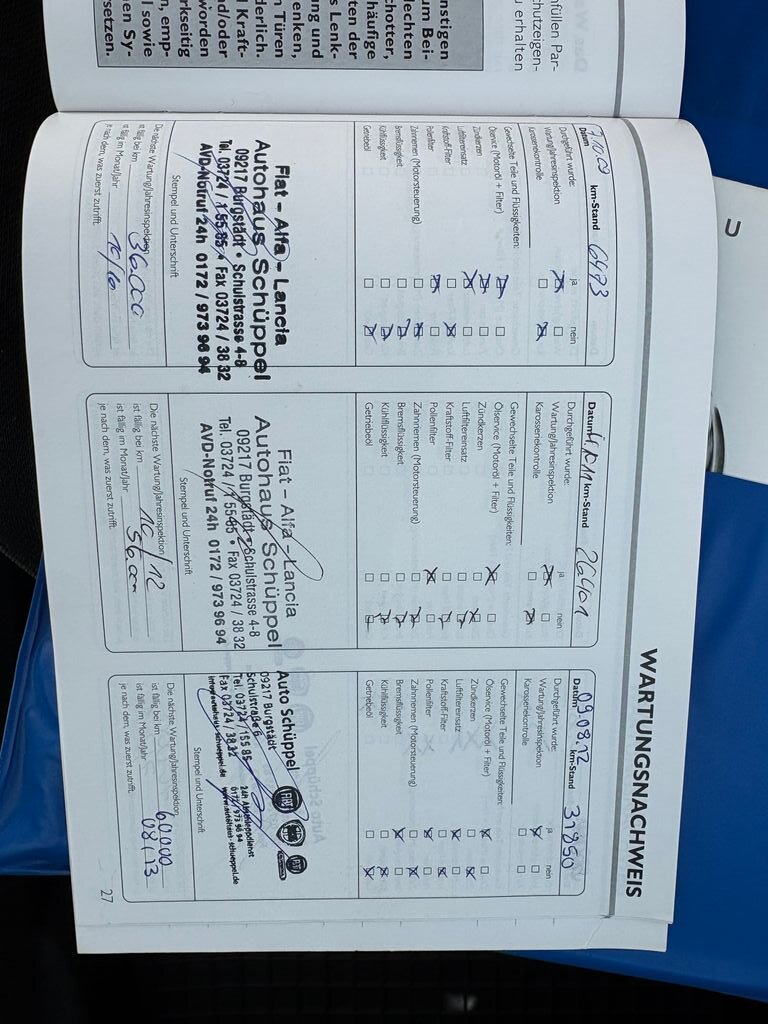 nfüllen Par-
chutzeigen-
u erhalten
nstigen
um Bei-
lechten
chotter,
häufige
ten der
s Lenk-
ng und
enken,
n Türen
derlich.
Kraft-
nd/oder
worden
rkseitig
n, emp-
l sowie
en Sy-
rsetzen.
WARTUNGSNACHWEIS
Datum 7.10.09 km-Stand 6473
Durchgeführt wurde: ja nein
Wartung/Jahresinspektion
Karosseriekontrolle
Gewechselte Teile und Flüssigkeiten:
Ölservice (Motoröl + Filter)
Zündkerzen
Luftfiltereinsatz
Kraftstoff-Filter
Pollenfilter
Zahnriemen (Motorsteuerung)
Bremsflüssigkeit
Kühlflüssigkeit
Getriebeöl
Fiat - Alfa - Lancia
Autohaus Schüppel
09217 Burgstädt • Schulstrasse 4-8
Tel. 03724 / 1 55 85 • Fax 03724 / 38 32
AVD-Notruf 24h 0172 / 973 96 94
Stempel und Unterschrift
Die nächste Wartung/Jahresinspektion
ist fällig bei km 36.000
ist fällig im Monat/Jahr 10/10
je nach dem, was zuerst zutrifft.
Datum km-Stand 26401
Durchgeführt wurde: ja nein
Wartung/Jahresinspektion
Karosseriekontrolle
Gewechselte Teile und Flüssigkeiten:
Ölservice (Motoröl + Filter)
Zündkerzen
Luftfiltereinsatz
Kraftstoff-Filter
Pollenfilter
Zahnriemen (Motorsteuerung)
Bremsflüssigkeit
Kühlflüssigkeit
Getriebeöl
Fiat - Alfa - Lancia
Autohaus Schüppel
09217 Burgstädt • Schulstrasse 4-8
Tel. 03724 / 1 55 85 • Fax 03724 / 38 32
AVD-Notruf 24h 0172 / 973 96 94
Stempel und Unterschrift
Die nächste Wartung/Jahresinspektion
ist fällig bei km 10/12
ist fällig im Monat/Jahr 56.000
je nach dem, was zuerst zutrifft.
Datum 09.08.12 km-Stand 31850
Durchgeführt wurde: ja nein
Wartung/Jahresinspektion
Karosseriekontrolle
Gewechselte Teile und Flüssigkeiten:
Ölservice (Motoröl + Filter)
Zündkerzen
Luftfiltereinsatz
Kraftstoff-Filter
Pollenfilter
Zahnriemen (Motorsteuerung)
Bremsflüssigkeit
Kühlflüssigkeit
Getriebeöl
Auto Schüppel
09217 Burgstädt
Schulstraße 6
Tel. 03724 / 155 85
Fax 03724 / 38 32
24h Abschleppdienst
0172/973 96 94
Stempel und Unterschrift
Die nächste Wartung/Jahresinspektion
ist fällig bei km 60.000
ist fällig im Monat/Jahr 08/13
je nach dem, was zuerst zutrifft.
27